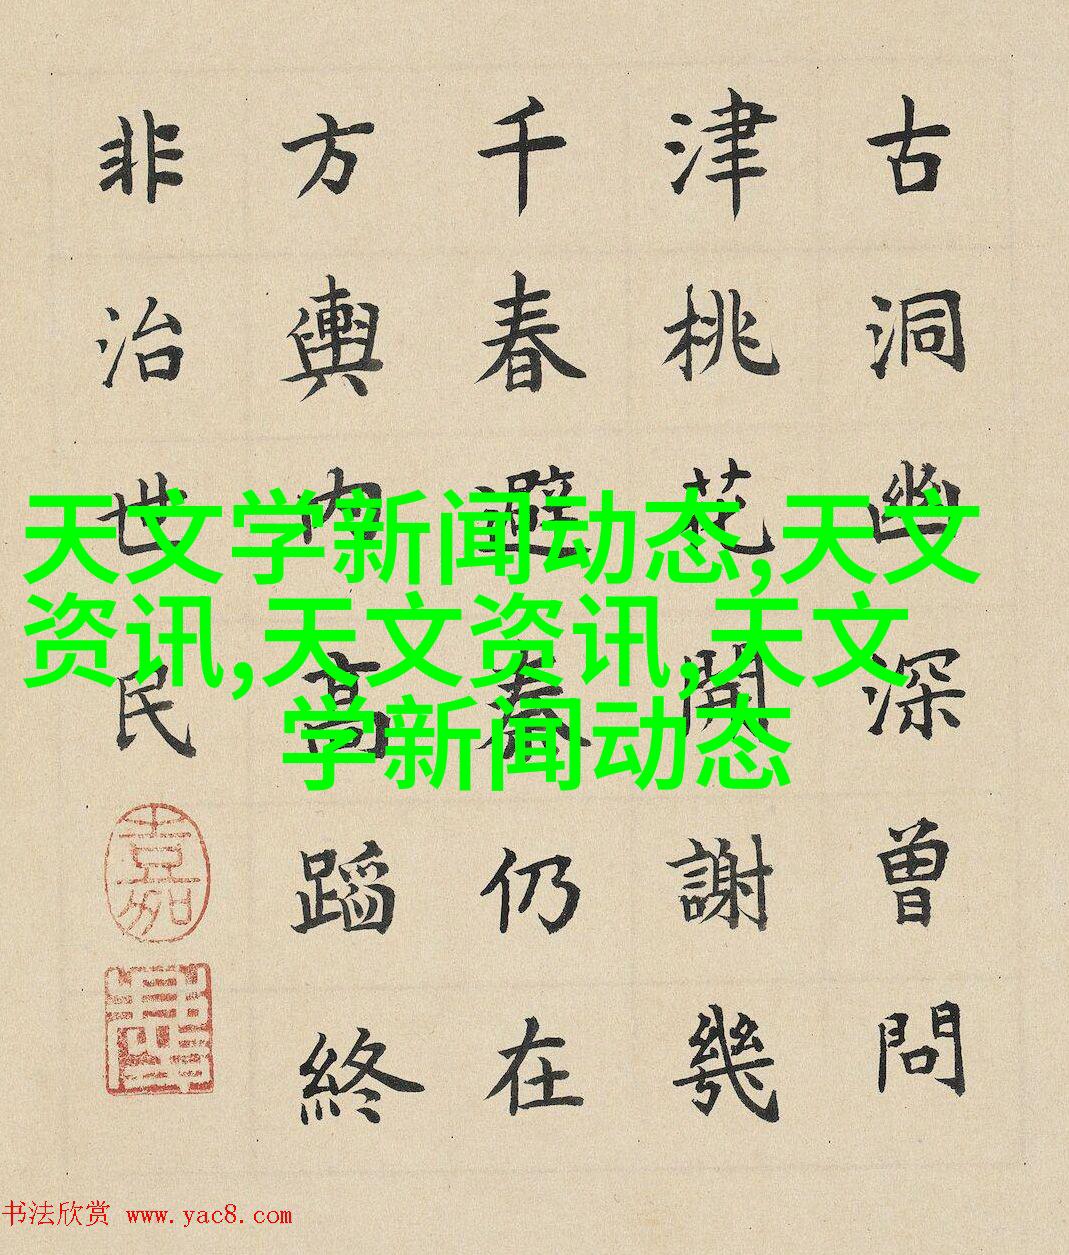 古洞幽深曾問
津桃花開謝幾
千春避秦仍在
方輿內高蹈終
非治世民
天文学新闻动态,天文
资讯,天文资讯,天文
学新闻动态
书法欣赏 www.yac8.com